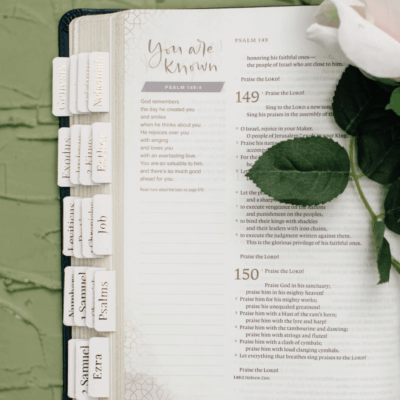 Genesis
Nehemiah
Exodus
Esther
Leviticus
Job
Numbers
2 Samuel
Psalms
2 Samuel
Ezra
You are
Known
PSALM 149:4
God remembers
the day he created you
and smiles
when he thinks about you.
He rejoices over you
with singing
and loves you
with an everlasting love.
You are so valuable to him,
and there's so much good
ahead for you.
PSALM 149
honoring his faithful ones—
the people of Israel who are close to him.
Praise the LORD!
149
Praise the LORD!
Sing to the LORD a new
Sing his praises in the assembly of the
O Israel, rejoice in your Maker.
O people of Jerusalem,
Praise his
For the
Let the
and a sharp
to execute vengeance
and punishment on the peoples,
to bind their kings with shackles
and their leaders with iron chains,
to execute the judgment written against them.
This is the glorious privilege of his faithful ones.
Praise the LORD!
150
Praise the LORD!
Praise God in his sanctuary;
praise him in his mighty heaven!
Praise him for his mighty works;
praise his unequaled greatness!
Praise him with a blast of the ram's horn;
praise him with the lyre and harp!
Praise him with the tambourine and dancing;
praise him with strings and flutes!
Praise him with a clash of cymbals;
praise him with loud clanging cymbals.
Let everything that breathes sing praises to the LORD!
Praise the LORD!